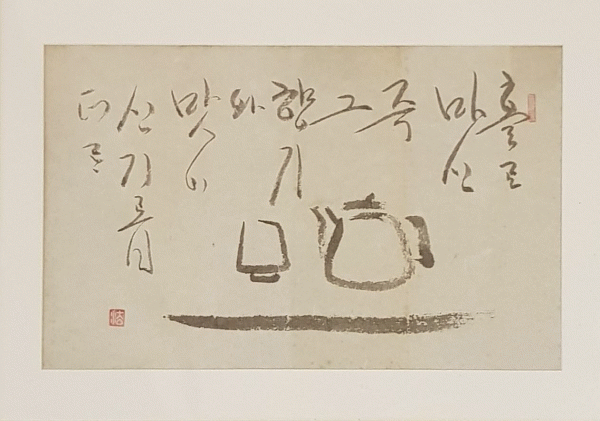 홀로
마신
즉
그
향기
와
맛이
신기롭
더라